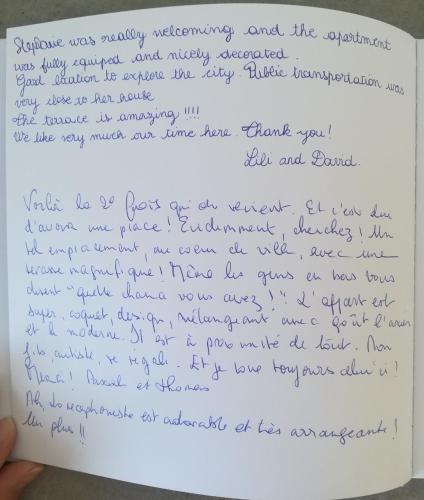 Stephanie was really welcoming and the apartment
was fully equiped and nicely decorated.
Good location to explore the city. Public transportation was
very close to her house
The terrace is amazing !!!!
We like very much our time here. Thank you!
Lili and David.
Voilà la 2e fois qu'on revient. Et c'est dur
d'avoir une place! Evidemment, cherchez! Un
tel emplacement, au coeur de ville, avec une
terasse magnifique! Même les gens en bas vous
disent "quelle chance vous avez!". L'appart est
super, coquet, design, mélangeant avec goût l'ancien
et le moderne. Il est à proximité de tout. Mon
fils, autiste, se régale. Et je loue toujours celui ci!
Merci! Pascale et Thomas
Ah, la est adorable et très arrangeante!
Un plus!!